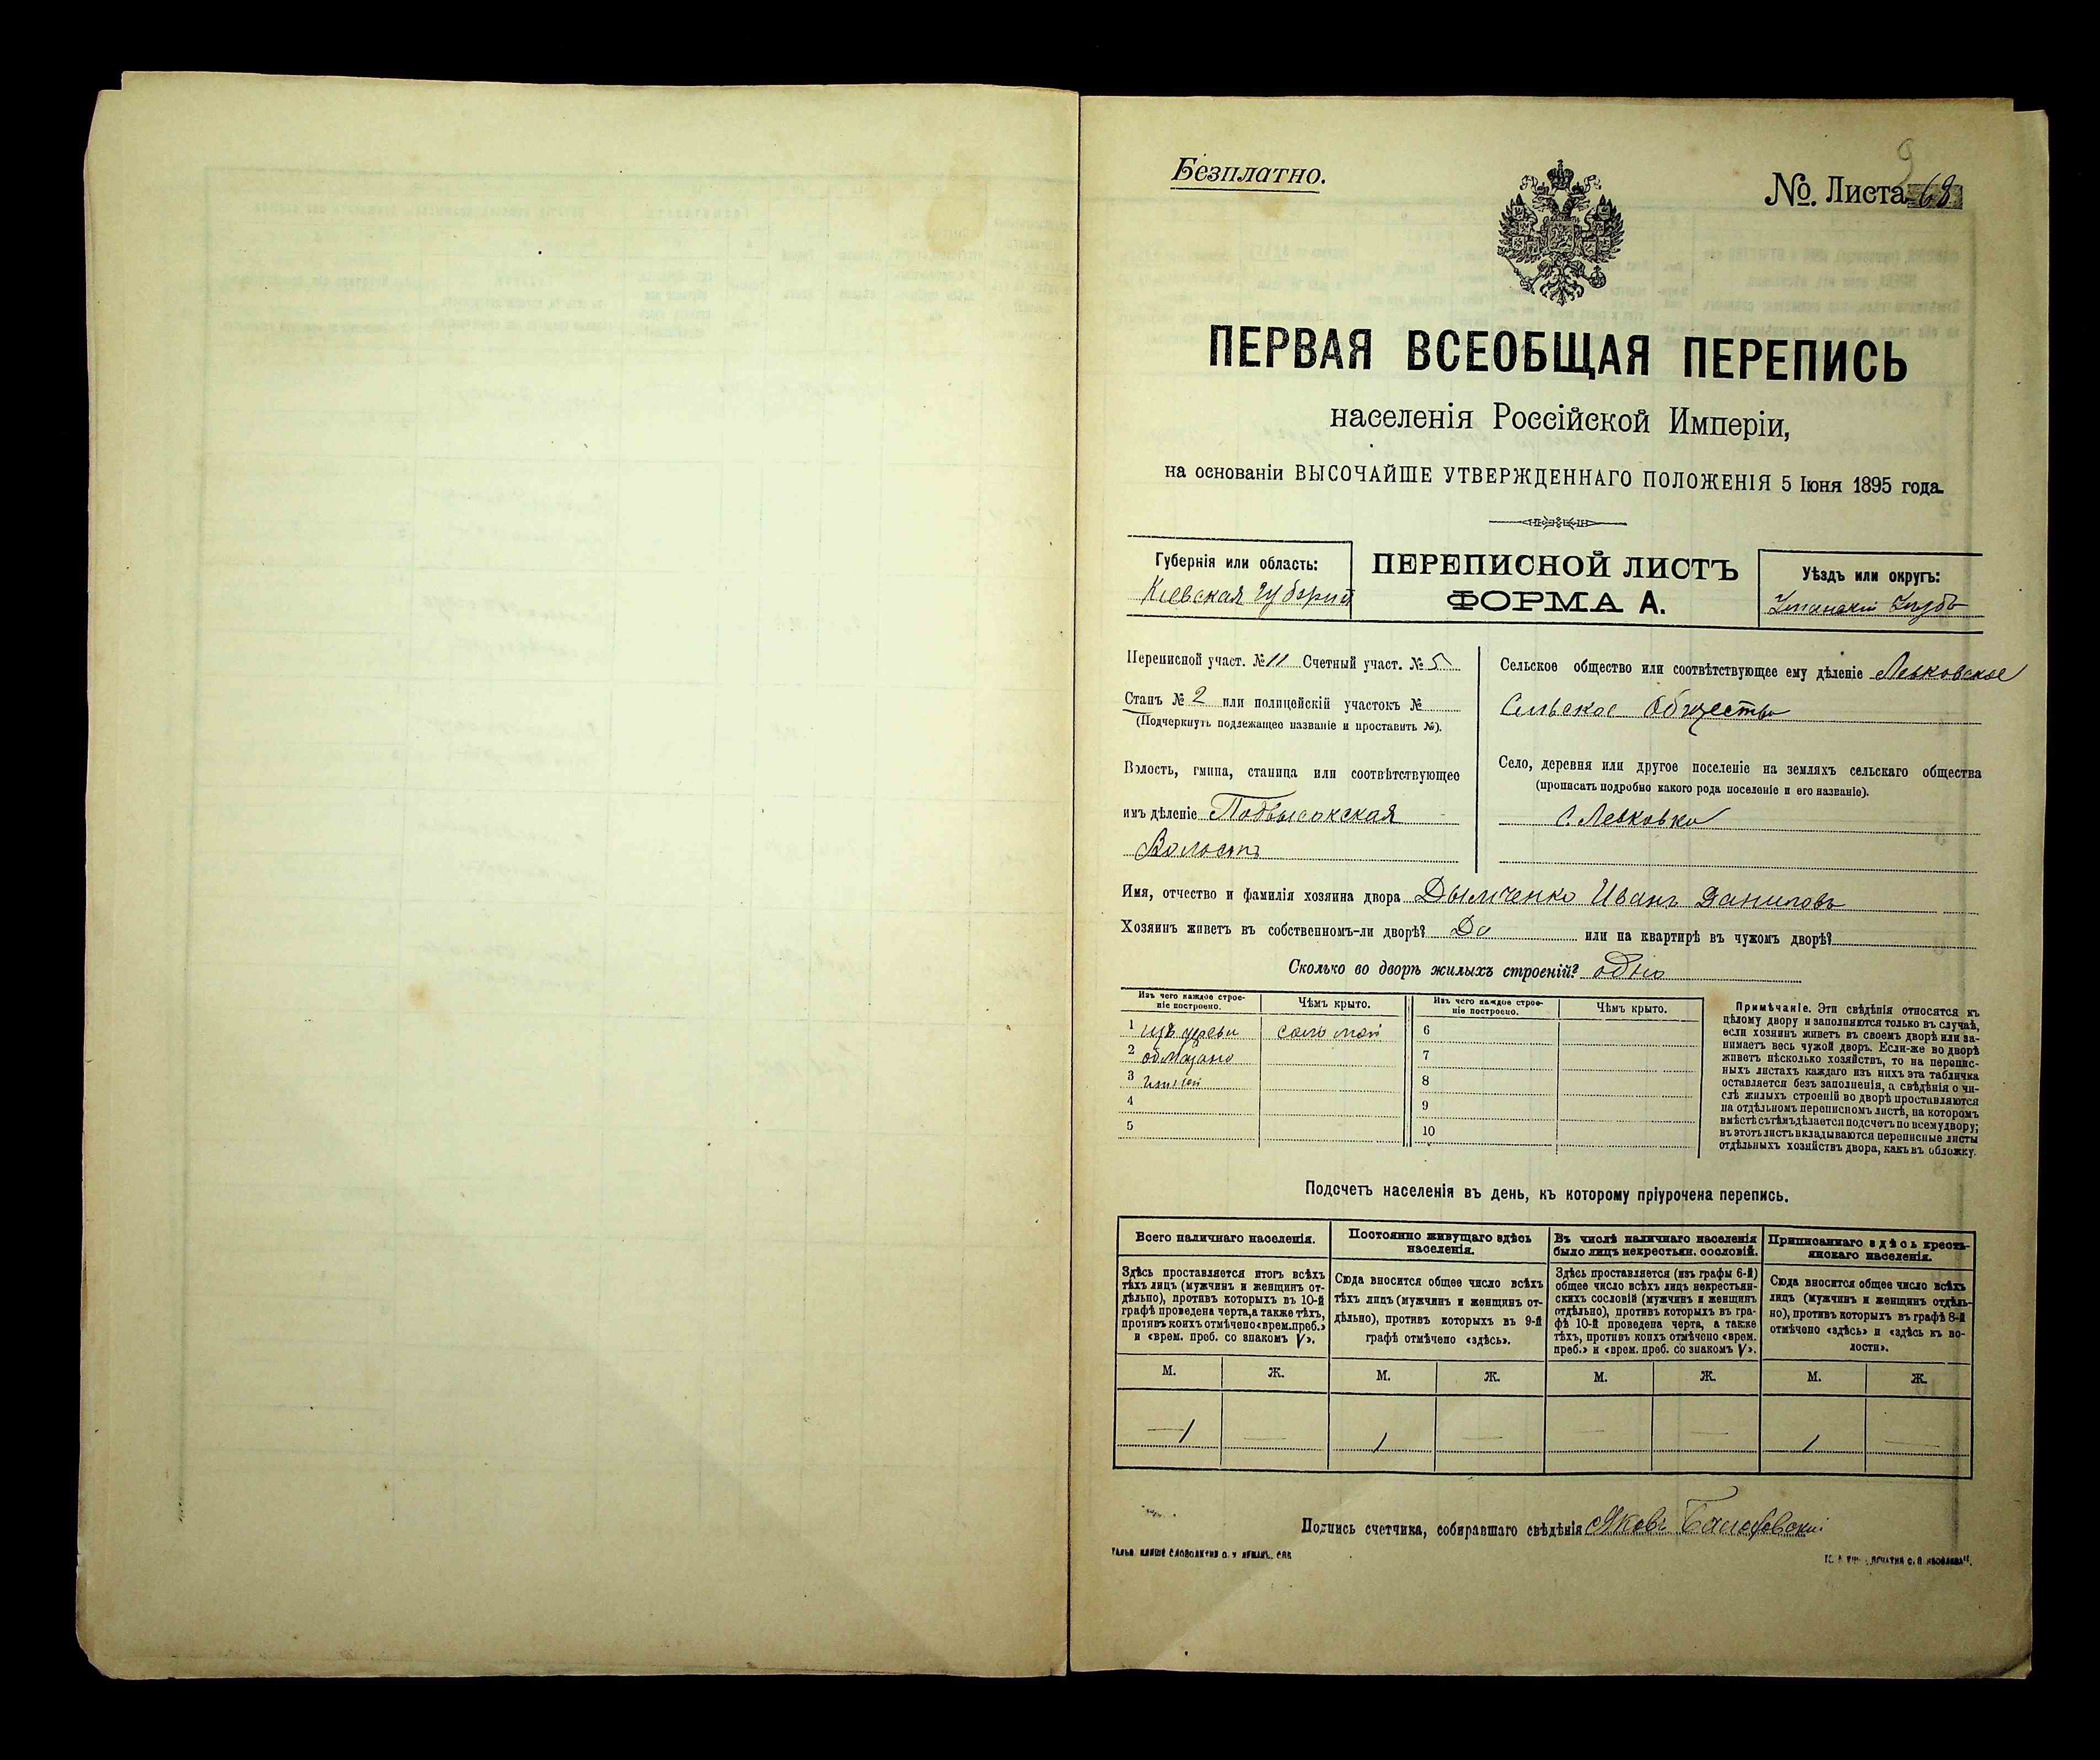 Безплатно.
No. Листа 68
9
ПЕРВАЯ ВСЕОБЩАЯ ПЕРЕПИСЬ
населенія Россійской Имперіи,
на основаніи ВЫСОЧАЙШЕ УТВЕРЖДЕННАГО ПОЛОЖЕНІЯ 5 Іюня 1895 года.
Губернія или область:
Кіевская Губернія
ПЕРЕПИСНОЙ ЛИСТЪ
ФОРМА А.
Уѣздъ или округъ:
Уманскій Уѣздъ
Переписной участ. № 11 Счетный участ. № 5
Станъ № 2 или полицейскій участокъ №
(Подчеркнуть подлежащее названіе и проставить №).
Волость, гмина, станица или соотвѣтствующее
имъ дѣленіе Подвысокская
Волость
Сельское общество или соотвѣтствующее ему дѣленіе Левковское
Сельское Общество
Село, деревня или другое поселеніе на земляхъ сельскаго общества
(прописать подробно какого рода поселеніе и его названіе).
с. Левковка
Имя, отчество и фамилія хозяина двора Дымченко Иванъ Даниловъ
Хозяинъ живетъ въ собственномъ-ли дворѣ? Да или на квартирѣ въ чужомъ дворѣ?
Сколько во дворѣ жилыхъ строеній? одно
Изъ чего каждое строе-
ніе построено.
Чѣмъ крыто.
Изъ чего каждое строе-
ніе построено.
Чѣмъ крыто.
1 изъ дерева соломой
2 обмазано
3
4
5
6
7
8
9
10
Примѣчаніе. Эти свѣдѣнія относятся къ
цѣлому двору и заполняются только въ случаѣ,
если хозяинъ живетъ въ своемъ дворѣ или за-
нимаетъ весь чужой дворъ. Если-же во дворѣ
живетъ нѣсколько хозяйствъ, то на перепис-
ныхъ листахъ каждаго изъ нихъ эта табличка
оставляется безъ заполненія, а свѣдѣнія о чи-
слѣ жилыхъ строеній во дворѣ проставляются
на отдѣльномъ переписномъ листѣ, на которомъ
вмѣстѣ съ тѣмъ дѣлается подсчетъ по всему двору;
въ этотъ листъ вкладываются переписные листы
отдѣльныхъ хозяйствъ двора, какъ въ обложку.
Подсчетъ населенія въ день, къ которому пріурочена перепись.
Всего наличнаго населенія.
Здѣсь проставляется итогъ всѣхъ
тѣхъ лицъ (мужчинъ и женщинъ от-
дѣльно), противъ которыхъ въ 10-й
графѣ проведена черта, а также тѣхъ,
противъ коихъ отмѣчено «врем. преб.»
и «врем. преб. со знакомъ V».
Постоянно живущаго здѣсь
населенія.
Сюда вносится общее число всѣхъ
тѣхъ лицъ (мужчинъ и женщинъ от-
дѣльно), противъ которыхъ въ 9-й
графѣ отмѣчено «здѣсь».
Въ числѣ наличнаго населенія
было лицъ некрестьян. сословій.
Здѣсь проставляется (изъ графы 6-й)
общее число всѣхъ лицъ некрестьян-
скихъ сословій (мужчинъ и женщинъ
отдѣльно), противъ которыхъ въ гра-
фѣ 10-й проведена черта, а также
тѣхъ, противъ коихъ отмѣчено «врем.
преб.» и «врем. преб. со знакомъ V».
Приписаннаго здѣсь кресть-
янскаго населенія.
Сюда вносится общее число всѣхъ
лицъ (мужчинъ и женщинъ отдѣль-
но), противъ которыхъ въ графѣ 8-й
отмѣчено «здѣсь» и «здѣсь къ во-
лости».
М. Ж. М. Ж. М. Ж. М. Ж.
—1 — 1 — — — 1 —
Подпись счетчика, собиравшаго свѣдѣнія Яковъ